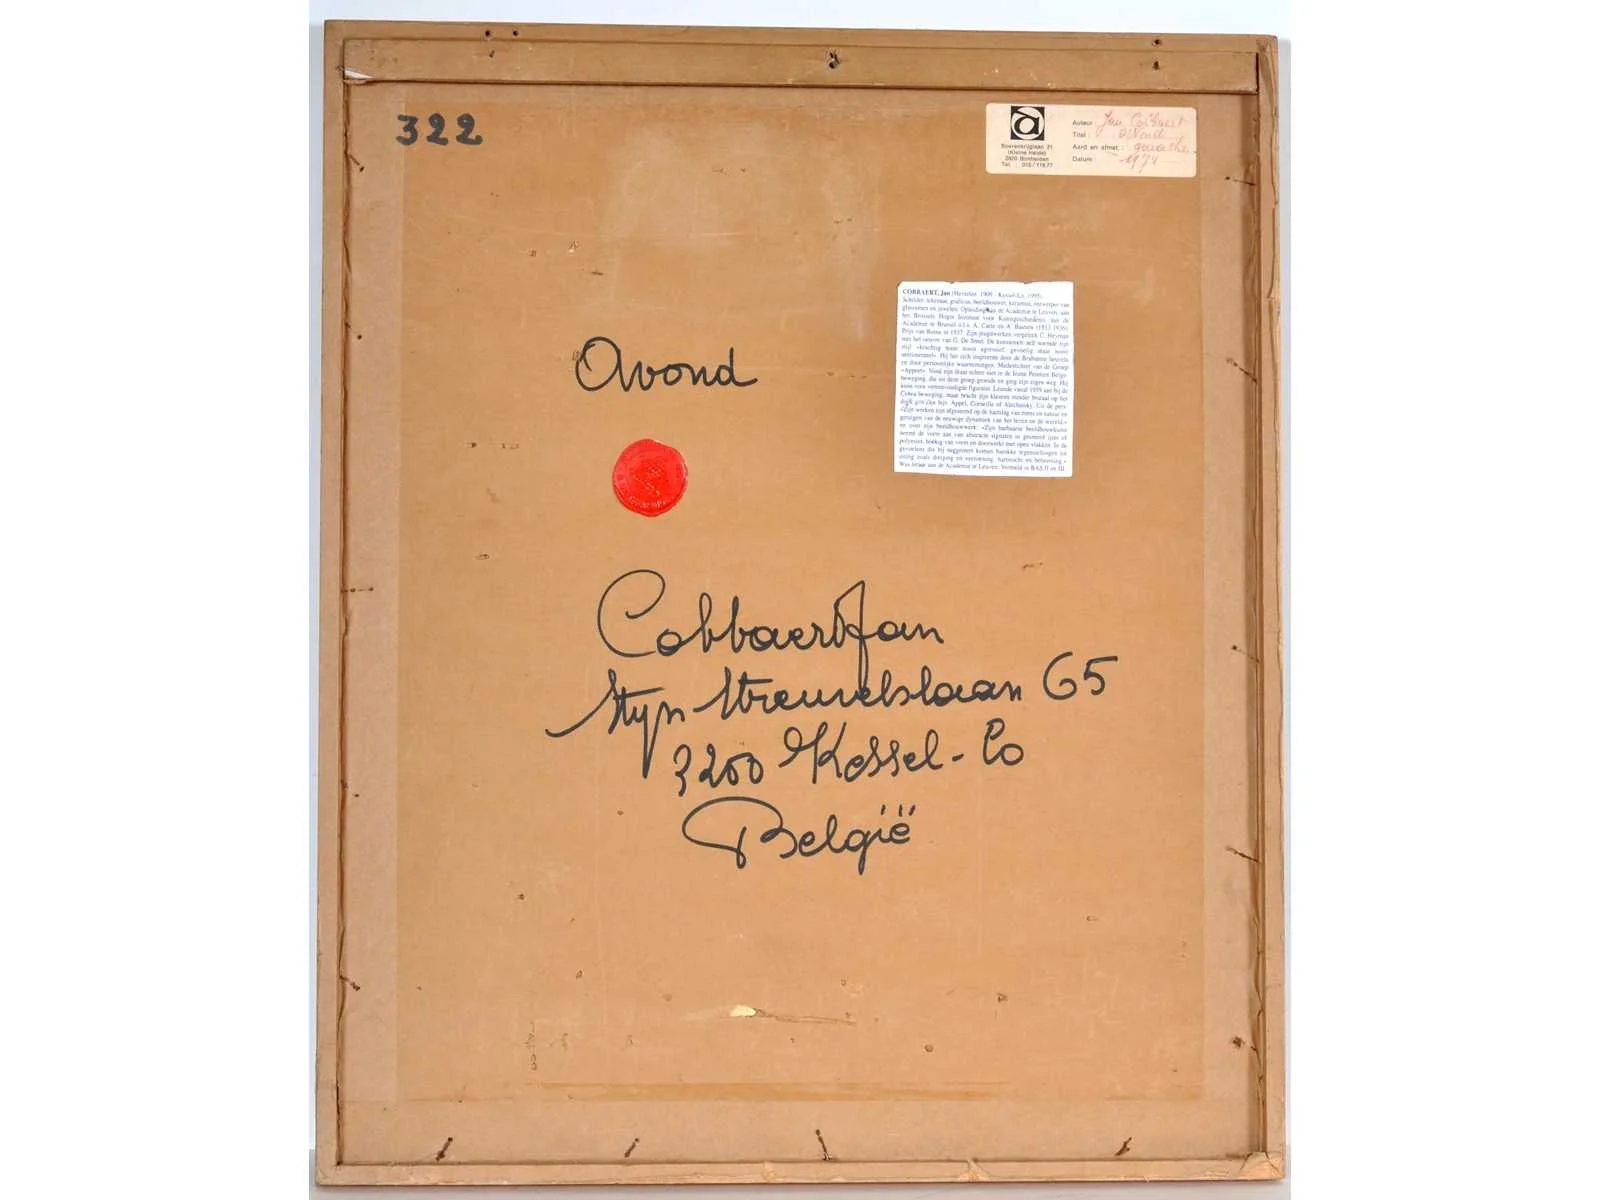 322
Boerenkrijglaan 21
(Kleine Heide)
2820 Bonheiden
Tel. 015/
Auteur: Jan Cobbaert
Titel: Avond
Aard en afmet.: gouache
Datum: 1974
COBBAERT, Jan (Heverlee, 1909 - Kessel-Lo, 1995).
Schilder, tekenaar, graficus, beeldhouwer, keramist, ontwerper van
glasramen en juwelen. Opleiding aan de Academie te Leuven, aan
het Brussels Hoger Instituut voor Kunstgeschiedenis, aan de
Academie te Brussel o.l.v. A. Carte en A. Bastien (1933-1936).
Prijs van Rome in 1937. Zijn jeugdwerken vergeleek C. Heyman
met het oeuvre van G. De Smet. De kunstenaar zelf noemde zijn
stijl «krachtig maar nooit agressief, gevoelig maar nooit
sentimenteel». Hij liet zich inspireren door de Brabantse heuvels
en door persoonlijke waarnemingen. Medestichter van de Groep
«Apport». Vond zijn draai echter niet in de Jeune Peinture Belge-
beweging, die uit deze groep groeide en ging zijn eigen weg. Hij
koos voor vereenvoudigde figuratie. Leunde vanaf 1959 aan bij de
Cobra beweging, maar bracht zijn kleuren minder brutaal op het
doek dan bijv. Appel, Corneille of Alechinsky. Uit de pers:
«Zijn werken zijn afgestemd op de hartslag van mens en natuur en
getuigen van de eeuwige dynamiek van het leven en de wereld.»
en over zijn beeldhouwwerk: «Zijn barbaarse beeldhouwkunst
neemt de vorm aan van abstracte signalen in gesmeed ijzer of
polyester, hoekig van vorm en doorwerkt met open vlakken. In de
gevoelens die hij suggereert komen barokke tegenstellingen tot
uiting zoals dreiging en verzoening, hartstocht en beheersing.»
Was leraar aan de Academie te Leuven. Vermeld in BAS II en III.
Avond
Cobbaert Jan
Stijn Streuvelslaan 65
3200 Kessel-Lo
België